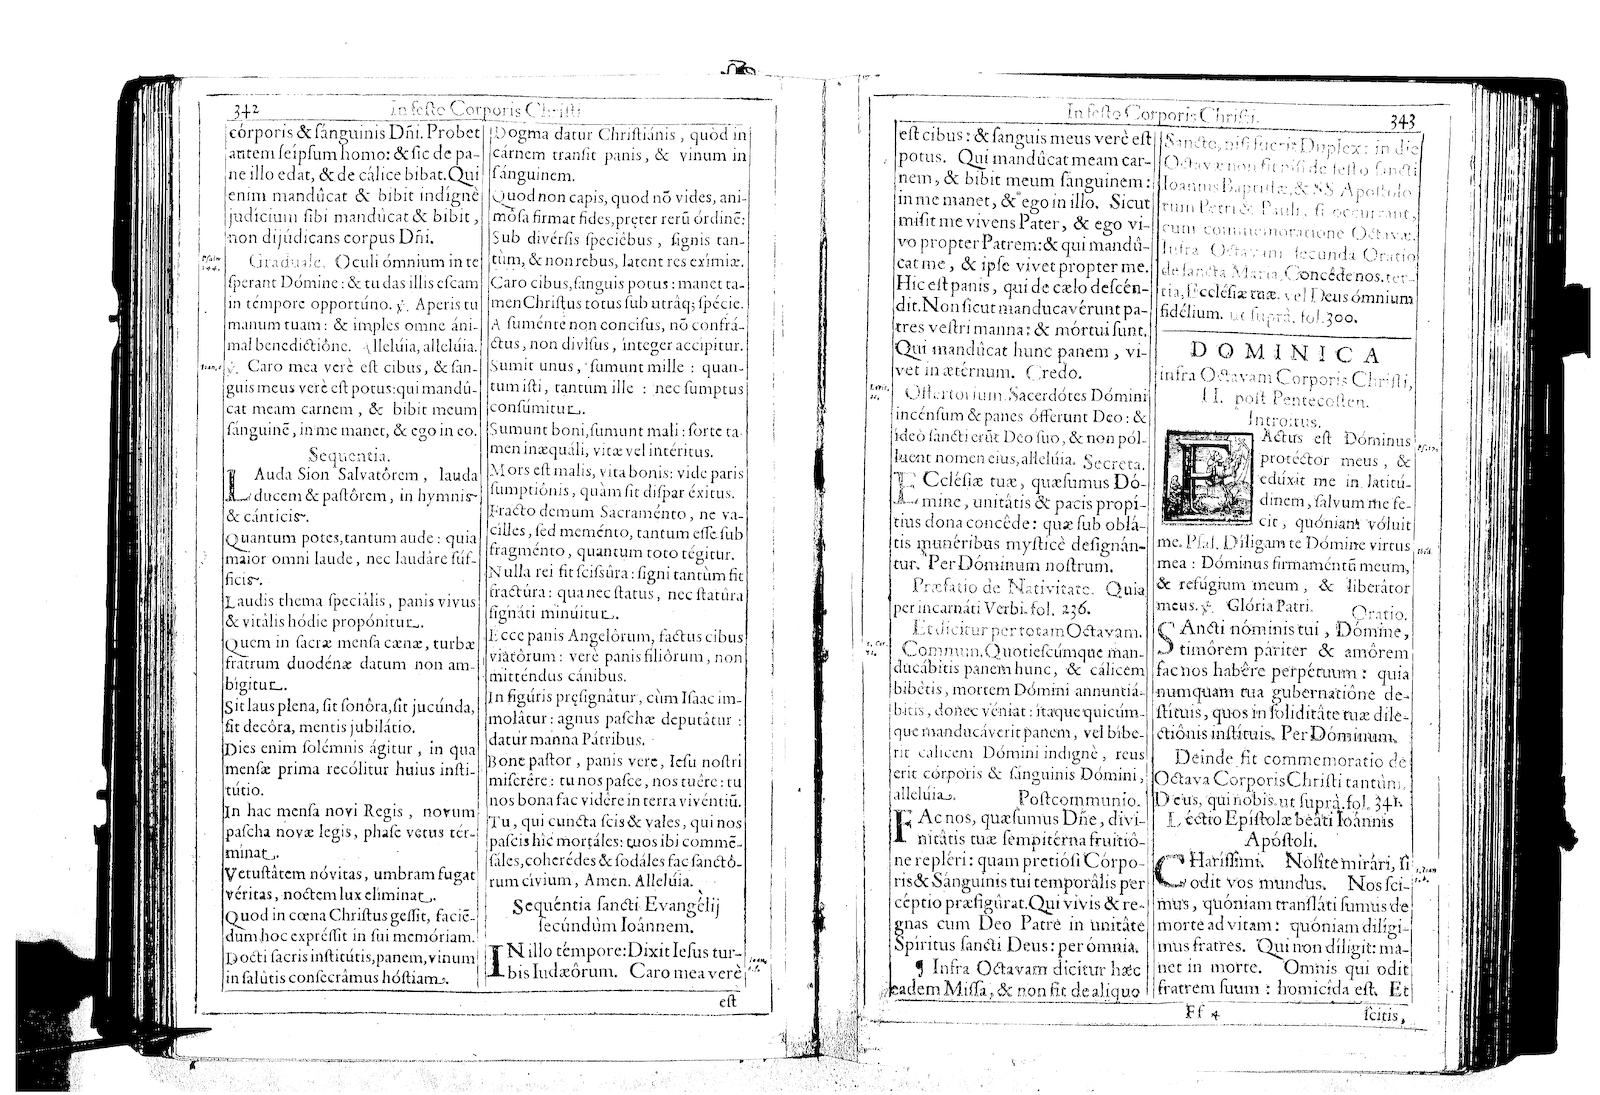 342
In festo Corporis Christi
córporis & sánguinis Dñi. Probet
autem seípsum homo: & sic de pa-
ne illo edat, & de cálice bibat. Qui
enim mandûcat & bibit indignè
judícium sibi mandûcat & bibit,
non dijúdicans corpus Dñi.
Graduale. Oculi ómnium in te
sperant Dómine: & tu das illis escam
in témpore opportúno. ℣. Aperis tu
manum tuam: & imples omne áni-
mal benedictiône. Alleluia, alleluia.
℣. Caro mea verè est cibus, & san-
guis meus verè est potus: qui mandú-
cat meam carnem, & bibit meum
sánguinē, in me manet, & ego in eo.
Sequentia.
LAuda Sion Salvatôrem, lauda
ducem & pastôrem, in hymnis
& cánticis.
Quantum potes, tantum aude: quia
maior omni laude, nec laudáre súf-
ficis.
Laudis thema speciális, panis vivus
& vitális hódie propónitur.
Quem in sacræ mensa cænæ, turbæ
fratrum duodénæ datum non am-
bigitur.
Sit laus plena, sit sonôra, sit jucúnda,
sit decôra, mentis jubilátio.
Dies enim solémnis ágitur, in qua
mensæ prima recólitur huius insti-
tútio.
In hac mensa novi Regis, novum
pascha novæ legis, phase vetus tér-
minat.
Vetustâtem nóvitas, umbram fugat
véritas, noctem lux eliminat.
Quod in cœna Christus gessit, faciē-
dum hoc expréssit in sui memóriam.
Docti sacris institútis, panem, vinum
in salútis consecrâmus hóstiam.
Dogma datur Christiánis, quòd in
cárnem transit panis, & vinum in
sánguinem.
Quod non capis, quod nō vides, ani-
mósa firmat fides, pręter rerū órdinē:
Sub divérsis speciébus, signis tan-
tùm, & non rebus, latent res exímiæ.
Caro cibus, sanguis potus: manet ta-
men Christus totus sub utrâq; spécie.
A suménte non concisus, nō confrá-
ctus, non divísus, ínteger accipitur.
Sumit unus, sumunt mille: quan-
tum isti, tantum ille: nec sumptus
consúmitur.
Sumunt boni, sumunt mali: sorte ta-
men inæquáli, vitæ vel intéritus.
Mors est malis, vita bonis: vide paris
sumptiónis, quàm sit dispar éxitus.
Fracto demum Sacraménto, ne va-
cilles, sed meménto, tantum esse sub
fragménto, quantum toto tégitur.
Nulla rei fit scissûra: signi tantùm fit
fractûra: qua nec status, nec statûra
signáti minúitur.
Ecce panis Angelórum, factus cibus
viatôrum: verè panis filiórum, non
mitténdus cánibus.
In figúris pręsignâtur, cùm Isaac im-
molâtur: agnus paschæ deputâtur:
datur manna Pátribus.
Bone pastor, panis vere, Iesu nostri
miserêre: tu nos pasce, nos tuêre: tu
nos bona fac vidêre in terra vivéntiū.
Tu, qui cuncta scis & vales, qui nos
pascis hîc mortáles: tuos ibi commē-
sáles, coherédes & sodáles fac sanctó-
rum civium, Amen. Alleluia.
Sequéntia sancti Evangélij
secúndùm Ioánnem.
IN illo témpore: Dixit Iesus tur-
bis Iudæôrum. Caro mea verè
est
In festo Corporis Christi.
343
est cibus: & sanguis meus verè est
potus. Qui mandûcat meam car-
nem, & bibit meum sanguinem:
in me manet, & ego in illo. Sicut
misit me vivens Pater, & ego vi-
vo propter Patrem: & qui mandû-
cat me, & ipse vivet propter me.
Hic est panis, qui de cælo descén-
dit. Non sicut manducavérunt pa-
tres vestri manna: & mórtui sunt.
Qui mandûcat hunc panem, vi-
vet in ætérnum. Credo.
Offertorium. Sacerdótes Dómini
incénsum & panes ófferunt Deo: &
ídeò sancti erūt Deo suo, & non pól-
luent nomen eius, alleluia. Secreta.
ECclésiæ tuæ, quæsumus Dó-
mine, unitâtis & pacis propí-
tius dona concêde: quæ sub oblá-
tis munéribus mysticè designán-
tur. Per Dóminum nostrum.
Præfatio de Nativitate. Quia
per incarnáti Verbi. fol. 236.
Et dicitur per totam Octavam.
Commun. Quotiescúmque man-
ducábitis panem hunc, & cálicem
bibètis, mortem Dómini annuntiá-
bitis, donec véniat: itaque quicúm-
que manducáverit panem, vel bíbe-
rit calicem Dómini indignè, reus
erit córporis & sánguinis Dómini,
alleluia. Postcommunio.
FAc nos, quæsumus Dñe, divi-
nitâtis tuæ sempitérna fruitiô-
ne repléri: quam pretiósi Córpo-
ris & Sánguinis tui temporâlis per
céptio præfigûrat. Qui vivis & re-
gnas cum Deo Patre in unitâte
Spíritus sancti Deus: per ómnia.
¶ Infra Octavam dicitur hæc
eadem Missa, & non fit de aliquo
Sancto, nisi fuerit Duplex: in die
Octavæ non fit nisi de festo sancti
Ioannis Baptistæ, & SS Apostolo
rum Petri & Pauli, si occurrant,
cum commemoratione Octavæ.
Infra Octavam secunda Oratio
de sancta Maria, Concéde nos. ter-
tia, Ecclésiæ tuæ. vel Deus ómnium
fidélium. ut suprà. fol. 300.
DOMINICA
infra Octavam Corporis Christi,
II. post Pentecosten.
Introitus.
FActus est Dóminus
protéctor meus, &
edúxit me in latitú-
dinem, salvum me fe-
cit, quóniam vóluit
me. Psal. Díligam te Dómine virtus
mea: Dóminus firmaméntū meum,
& refúgium meum, & liberátor
meus. ℣. Glória Patri. Oratio.
SAncti nóminis tui, Dómine,
timôrem páriter & amôrem
fac nos habêre perpétuum: quia
numquam tua gubernatióne de-
stítuis, quos in soliditâte tuæ dile-
ctiônis instítuis. Per Dóminum.
Deinde fit commemoratio de
Octava Corporis Christi tantùm.
Deus, qui nobis. ut suprà. fol. 341.
Léctio Epístolæ beáti Ioánnis
Apóstoli.
CHaríssimi. Nolíte mirári, si
odit vos mundus. Nos sci-
mus, quóniam transláti sumus de
morte ad vitam: quóniam díligi-
mus fratres. Qui non díligit: ma-
net in morte. Omnis qui odit
fratrem suum: homicída est. Et
Ff 4
scitis,